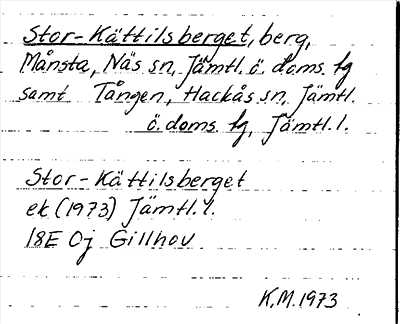 Stor-Kättilsberget, berg,
Månsta, Näs sn, Jämtl. ö. doms. tg
samt Tången, Hackås sn, Jämtl.
ö. doms. tg, Jämtl. l.
Stor-Kättilsberget
ek (1973) Jämtl. l.
18E 0j Gillhov
K.M. 1973